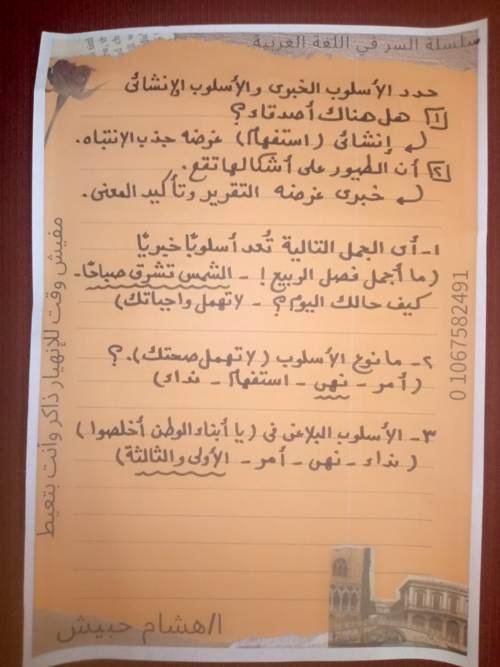 سلسلة السر في اللغة العربية
حدد الأسلوب الخبرى والأسلوب الإنشائى
١ هل هناك أصدقاء؟
إنشائى (استفهام) غرضه جذب الإنتباه.
٢ أن الطيور على أشكالها تقع.
خبرى غرضه التقرير وتأكيد المعنى.
١- أى الجمل التالية تُعد أسلوبًا خبريًا
(ما أجمل فصل الربيع! - الشمس تشرق صباحًا -
كيف حالك اليوم؟ - لا تهمل واجباتك)
٢- ما نوع الأسلوب (لا تهمل صحتك).؟
(أمر - نهى - استفهام - نداء)
٣- الأسلوب البلاغى فى (يا أبناء الوطن أخلصوا)
(نداء - نهى - أمر - الأولى والثالثة)
مفيش وقت للإنهيار ذاكر وأنت بتعيط
0 1067582491
ا/هشام حبيش